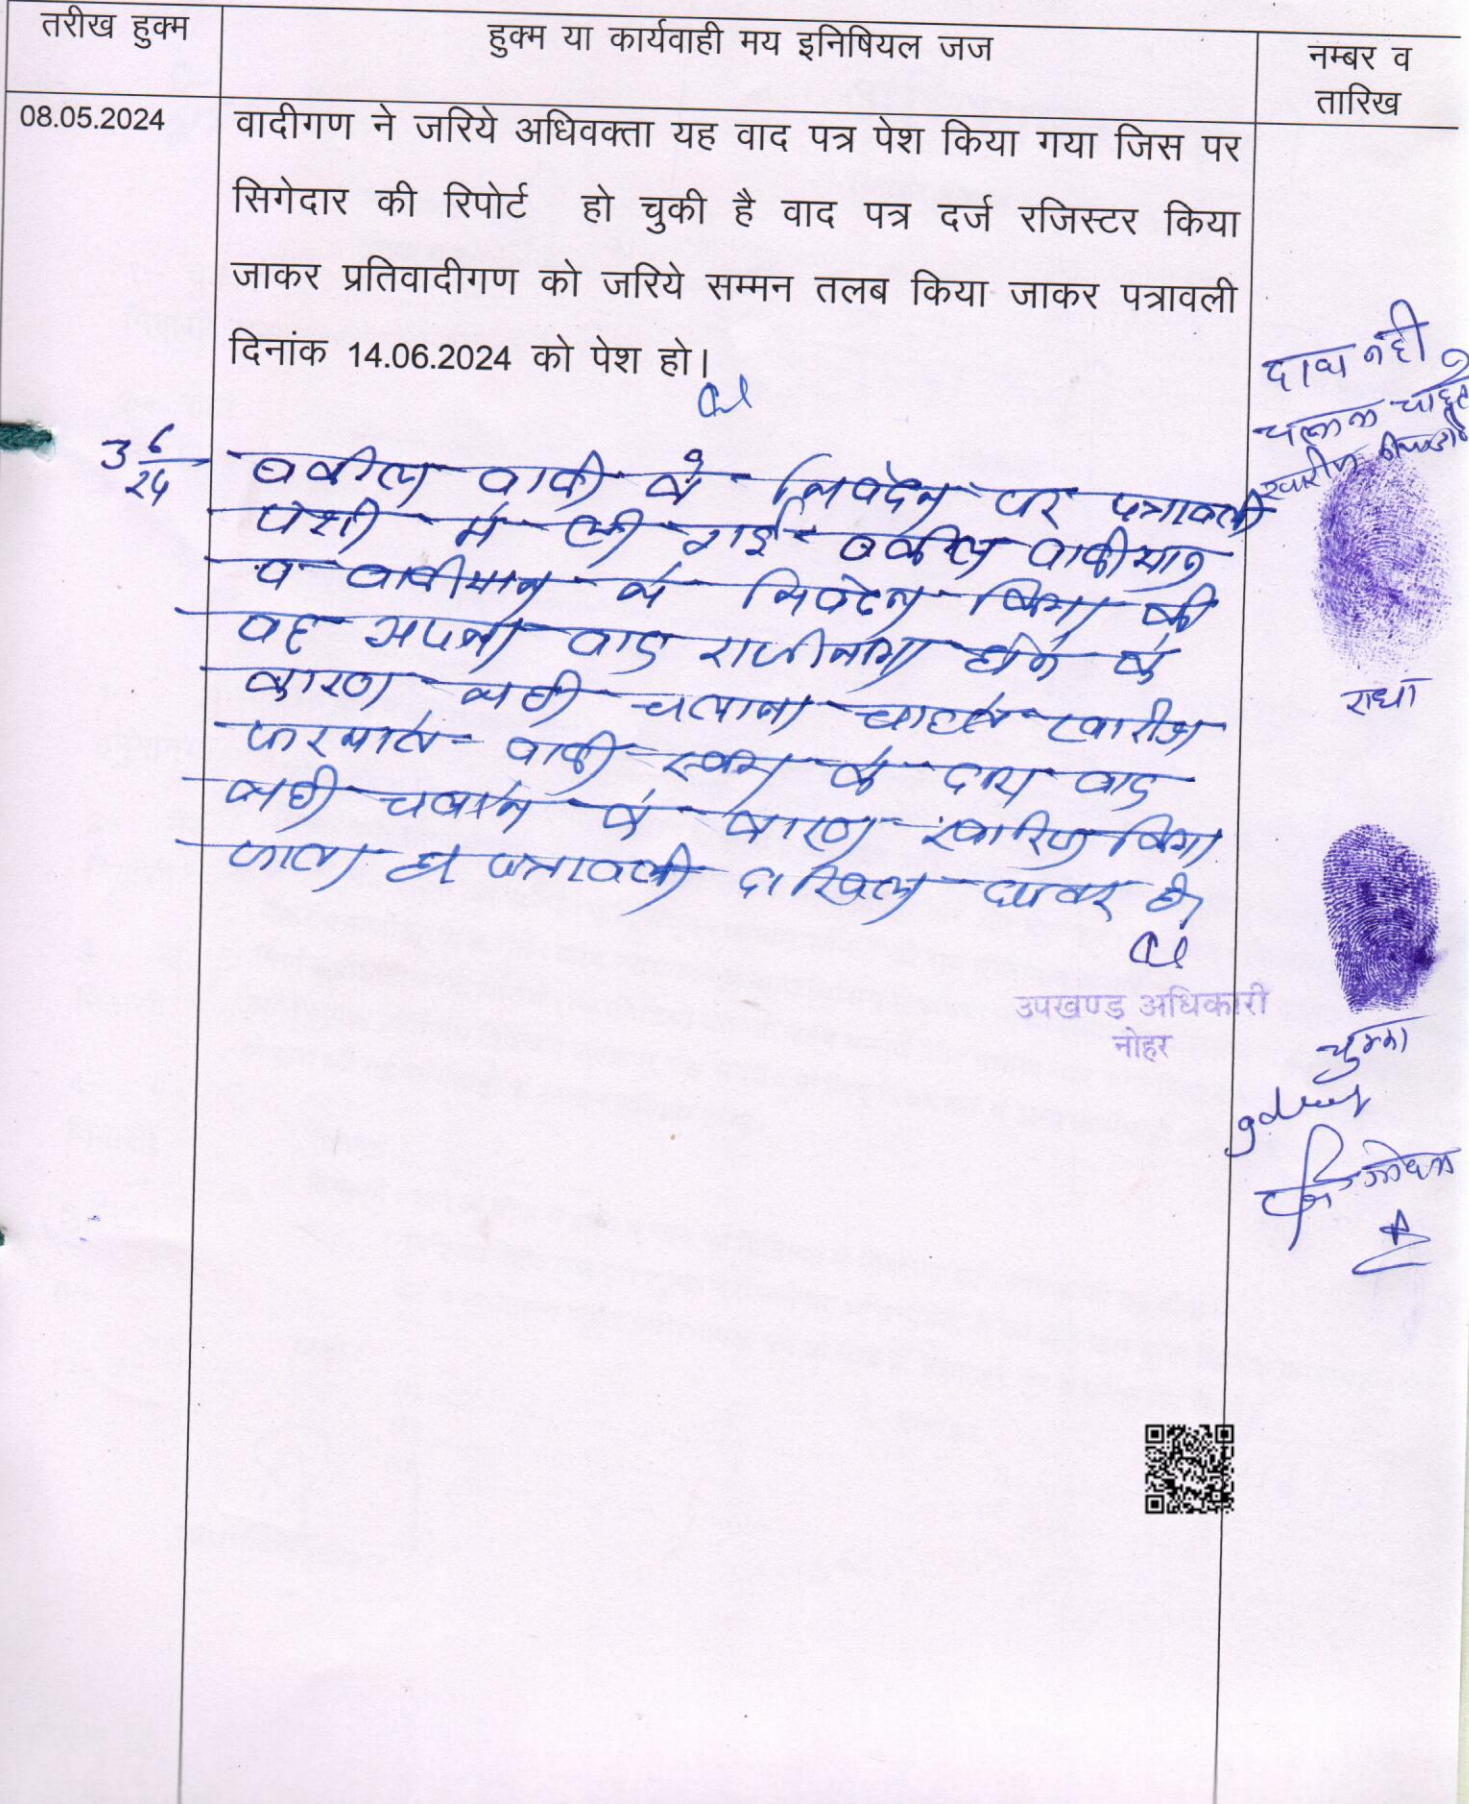 तरीख हुक्म
हुक्म या कार्यवाही मय इनिषियल जज
नम्बर व
तारिख
08.05.2024
वादीगण ने जरिये अधिवक्ता यह वाद पत्र पेश किया गया जिस पर
सिगेदार की रिपोर्ट हो चुकी है वाद पत्र दर्ज रजिस्टर किया
जाकर प्रतिवादीगण को जरिये सम्मन तलब किया जाकर पत्रावली
दिनांक 14.06.2024 को पेश हो।
3 6/24
वकील वादी के निवेदन पर पत्रावली
पेशी में ली गई वकील वादीयान
व वादीयान ने निवेदन किया की
वह अपना वाद राजीनामा होने के
कारण नही चलाना चाहते खारीज
फरमावे वादी स्वयं के द्वारा वाद
नही चलाने के कारण खारिज किया
जाता है पत्रावली दाखिल दफ्तर हो
उपखण्ड अधिकारी
नोहर
दावा नही
चलाना चाहते
खारीज
राधा
चुम्मा